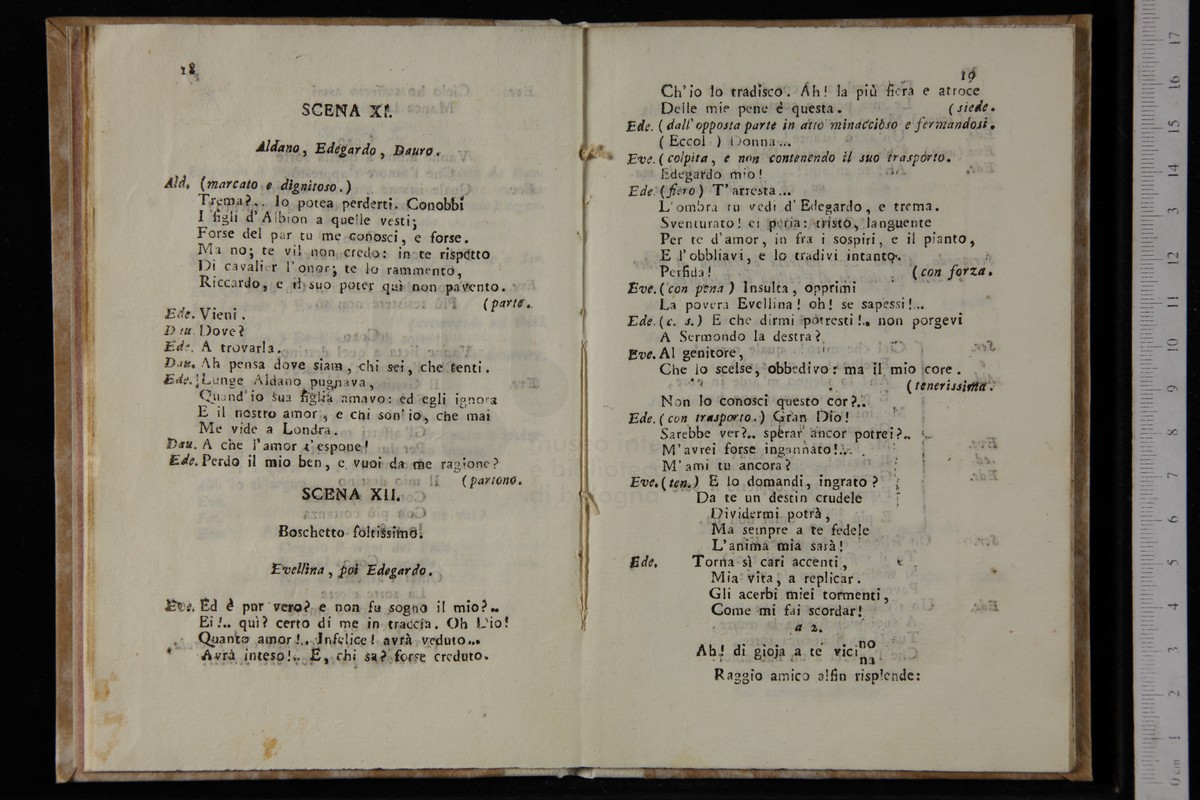 18
SCENA XI.
Aldano, Edegardo, Dauro.
Ald. (marcato e dignitoso.)
Trema?.. Io potea perderti. Conobbi
I figli d'Albion a quelle vesti;
Forse del par tu me conosci, e forse.
Ma no; te vil non credo: in te rispetto
Di cavalier l'onor; te lo rammento,
Riccardo, e il suo poter quì non pavento.
(parte.
Ede. Vieni.
Dau. Dove?
Ede. A trovarla.
Dau. Ah pensa dove siam, chi sei, che tenti.
Ede. Lunge Aldano pugnava,
Quand'io sua figlia amavo: ed egli ignora
E il nostro amor, e chi son'io, che mai
Me vide a Londra.
Dau. A che l'amor t'espone!
Ede. Perdo il mio ben, e vuoi da me ragione?
(partono.
SCENA XII.
Boschetto foltissimo.
Evellina, poi Edegardo.
Eve. Ed è pur vero? e non fu sogno il mio?..
Ei!.. quì? certo di me in traccia. Oh Dio!
Quanto amor!.. Infelice! avrà veduto...
Avrà inteso!.. E, chi sa? forse creduto.
19
Ch'io lo tradisco. Ah! la più fiera e atroce
Delle mie pene è questa. (siede.
Ede. (dall'opposta parte in atto minaccioso e fermandosi.
(Eccol) Donna...
Eve. (colpita, e non contenendo il suo trasporto.
Edegardo mio!
Ede. (fiero) T'arresta...
L'ombra tu vedi d'Edegardo, e trema.
Sventurato! ei peria: tristo, languente
Per te d'amor, in fra i sospiri, e il pianto,
E l'obbliavi, e lo tradivi intanto.
Perfida! (con forza.
Eve. (con pena) Insulta, opprimi
La povera Evellina! oh! se sapessi!..
Ede. (c. s.) E che dirmi potresti!.. non porgevi
A Sermondo la destra?
Eve. Al genitore,
Che lo scelse, obbedivo: ma il mio core.
(tenerissima.
Non lo conosci questo cor?..
Ede. (con trasporto.) Gran Dio!
Sarebbe ver?.. sperar ancor potrei?..
M'avrei forse ingannato!..
M'ami tu ancora?
Eve. (ten.) E lo domandi, ingrato?
Da te un destin crudele
Dividermi potrà,
Ma sempre a te fedele
L'anima mia sarà!
Ede. Torna sì cari accenti,
Mia vita, a replicar.
Gli acerbi miei tormenti,
Come mi fai scordar!
a 2.
Ah! di gioja a te vicino
na
Raggio amico alfin risplende: